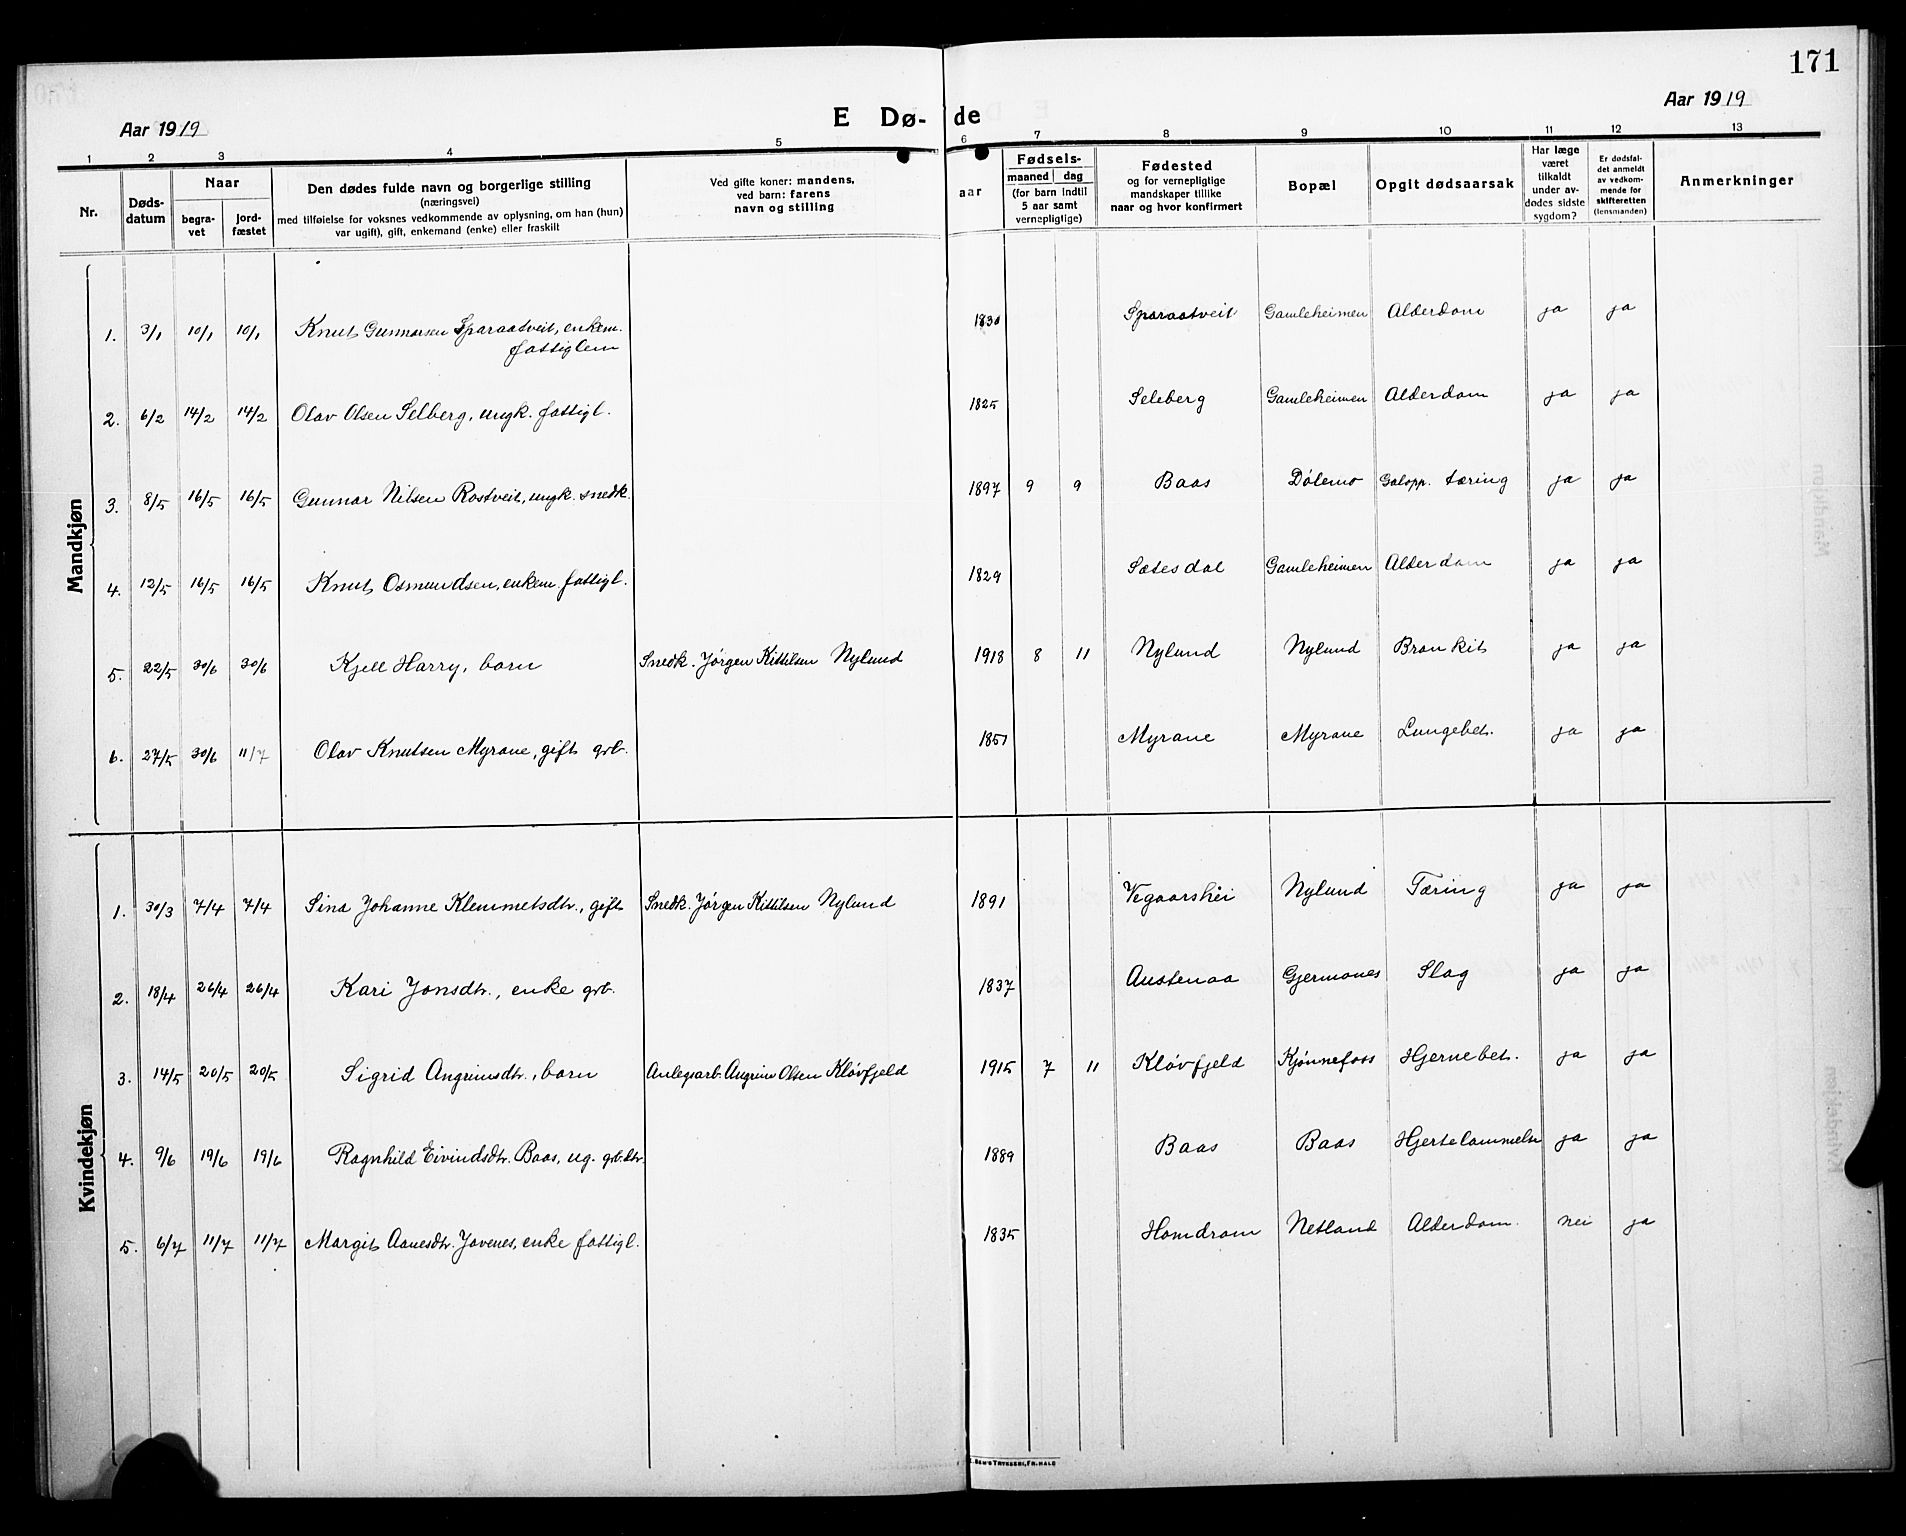 171
Aar 1919
E Dø-de
Aar 1919
1 2 3 4 5 6 7 8 9 10 11 12 13
Nr.
Døds-
datum
Naar
begra-
vet
jord-
fæstet
Den dødes fulde navn og borgerlige stilling
(næringsvei)
med tilføielse for voksnes vedkommende av oplysning, om han (hun)
var ugift), gift, enkemand (enke) eller fraskilt
Ved gifte koner: mandens,
ved barn: farens
navn og stilling
aar
Fødsels-
maaned dag
(for barn indtil
5 aar samt
vernepligtige)
Fødested
og for vernepligtige
mandskaper tillike
naar og hvor konfirmert
Bopæl
Opgit dødsaarsak
Har læge
været
tilkaldt
under av-
dødes sidste
sygdom?
Er dødsfal-
det anmeldt
av vedkom-
mende for
skifteretten
(lensmanden)
Anmerkninger
Mandkjøn
1. 3/1 10/1 10/1 Knut Gunnarsen Sparaatveit, enkem. 1830 Sparaatveit Gamleheimen Alderdom ja ja
fattiglem
2. 6/2 14/2 14/2 Olav Olsen Selberg, ungk. fattigl. 1825 Seleberg Gamleheimen Alderdom ja ja
3. 8/5 16/5 16/5 Gunnar Nilsen Rostveit, ungk. snedk. 1897 9 9 Baas Dølemo Galopp. tæring ja ja
4. 12/5 16/5 16/5 Knut Osmundsen, enkem. fattigl. 1829 Sætesdal Gamleheimen Alderdom ja ja
5. 22/5 30/6 30/6 Kjell Harry, barn Snedk. Jørgen Kittilsen Nylund 1918 8 11 Nylund Nylund Bronkit ja ja
6. 27/5 30/6 11/7 Olav Knutsen Myrane, gift grb. 1851 Myrane Myrane Lungebet. ja ja
Kvindekjøn
1. 30/3 7/4 7/4 Sina Johanne Klemmetsdtr., gift Snedk. Jørgen Kittilsen Nylund 1891 Vegaarshei Nylund Tæring ja ja
2. 18/4 26/4 26/4 Kari Jonsdtr., enke grb. 1837 Austenaa Gjermones Slag ja ja
3. 14/5 20/5 20/5 Sigrid Angrimsdtr., barn Anlegsarb. Angrim Olsen Kløvfjeld 1915 7 11 Kløvfjeld Kjønnefoss Hjernebet. ja ja
4. 9/6 19/6 19/6 Ragnhild Eivindsdtr. Baas, ug. grb.dtr. 1889 Baas Baas Hjertelammelse ja ja
5. 6/7 11/7 11/7 Margit Aanesdtr. Jovenes, enke fattigl. 1835 Homdrom Netland Alderdom. nei ja